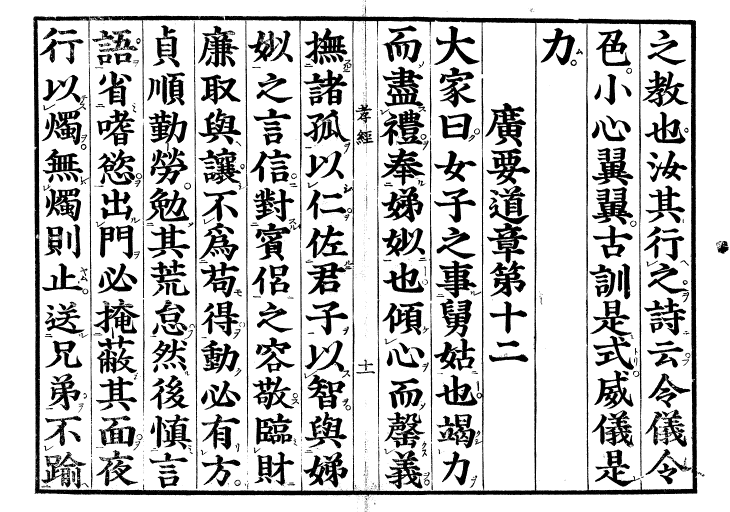 之教也汝其行之詩云令儀令
色小心翼翼古訓是式威儀是
力
廣要道章第十二
大家曰女子之事舅姑也竭力
而盡禮奉娣姒也傾心而罄義
孝經
十一
撫諸孤以仁佐君子以智與娣
姒之言信對賓侶之容敬臨財
廉取與讓不爲苟得動必有方
貞順勤勞勉其荒怠然後慎言
語省嗜慾出門必掩蔽其面夜
行以燭無燭則止送兄弟不踰